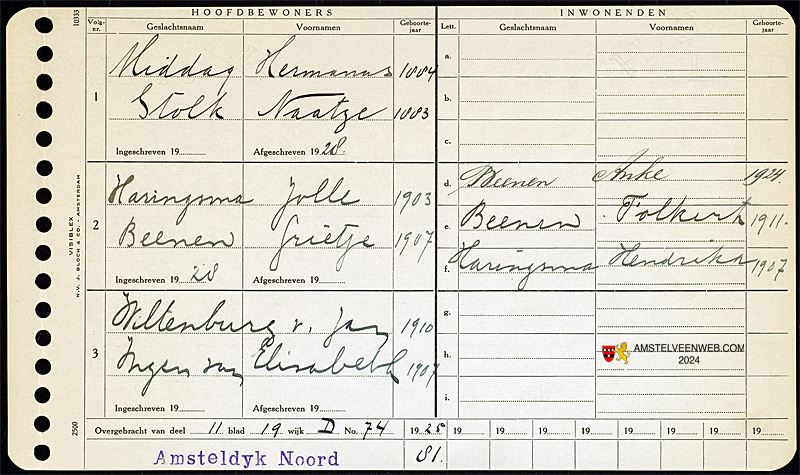 HOOFDBEWONERS INWONENDEN
Volg-nr. Geslachtsnaam Voornamen Geboorte-jaar Lett. Geslachtsnaam Voornamen Geboorte-jaar
10333
1
Middag Hermanus 1884
Stolk Naatje 1883
Ingeschreven 19 Afgeschreven 1928.
a.
b.
c.
2
Haringsma Jolle 1903
Beenen Grietje 1907
Ingeschreven 19 28 Afgeschreven 19
d. Beenen Anke 1924.
e. Beenen Folkert 1911.
f. Haringsma Hendrika 1907
3
Wiltenburg v. Jan 1910
Ingen van Elisabeth 1907
Ingeschreven 19 Afgeschreven 19
g.
h.
i.
AMSTELVEENWEB.COM
2024
VISIBLEX
N.V. J. BLOCH & CO. AMSTERDAM
2500
Overgebracht van deel 11 blad 19 wijk D No. 74 1925 19 19 19 19 19 19 19 19
Amsteldyk Noord 81.